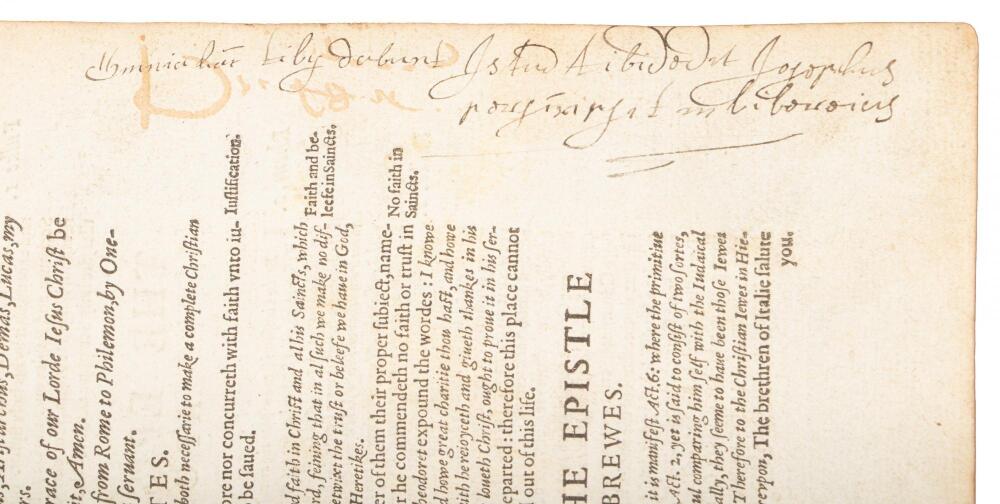 tiby dabunt Istud tibi dedit Josephus
Demas, Lucas, my
race of our Lorde Iesus Christ be
it, Amen.
from Rome to Philemon, by One-
seruant.
TES.
both necessarie to make a complete Christian
ore nor concurreth with faith vnto iu-
be saued.
Iustification.
d faith in Christ and al his Saincts, which
id, feining that in al such we make no dif-
betwixt the trust or beleefe we haue in God,
Heretikes.
Faith and be-
leefe in Saincts.
er of them their proper subiect, name-
r he commendeth no faith or trust in
heodoret expound the wordes: I knowe
d howe great charitie thou hast, and howe
ith he reioyceth and giueth thankes in his
loueth Christ, ought to proue it in his ser-
eparted: therefore this place cannot
out of this life.
No faith in
Saincts.
HE EPISTLE
BREWES.
it is manifest Act. 6: where the primitiue
Act. 2, yet is said to consist of two sortes,
ul comparing him self with the Iudaical
ally, they seeme to haue been those Iewes
Therefore to the Christian Iewes in Hie-
vpon, The brethren of Italie salute
you.